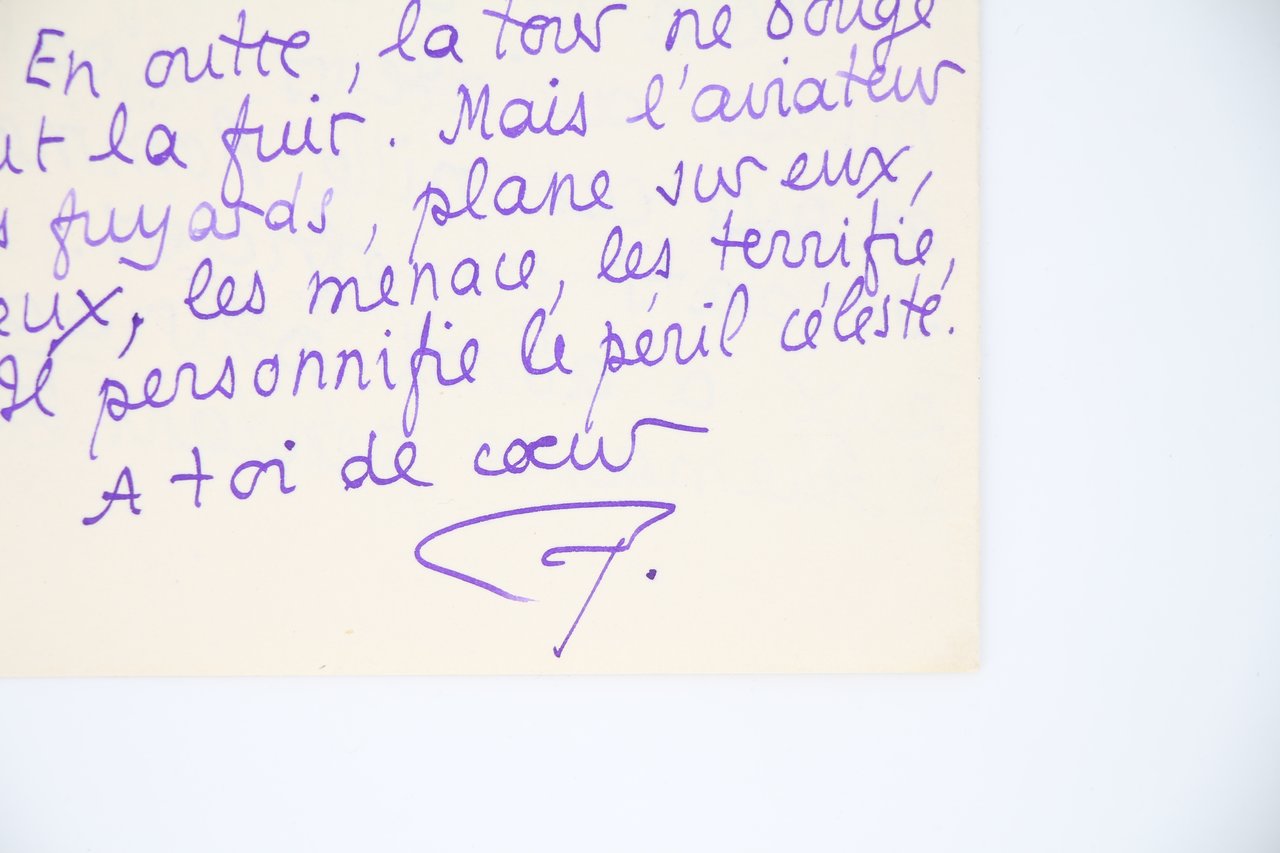 En outre, la tour ne bouge
ut la fuir. Mais l'aviateur
s fuyards, plane sur eux,
eux, les menace, les terrifie,
Il personnifie le péril céleste.
A toi de cœur
J.